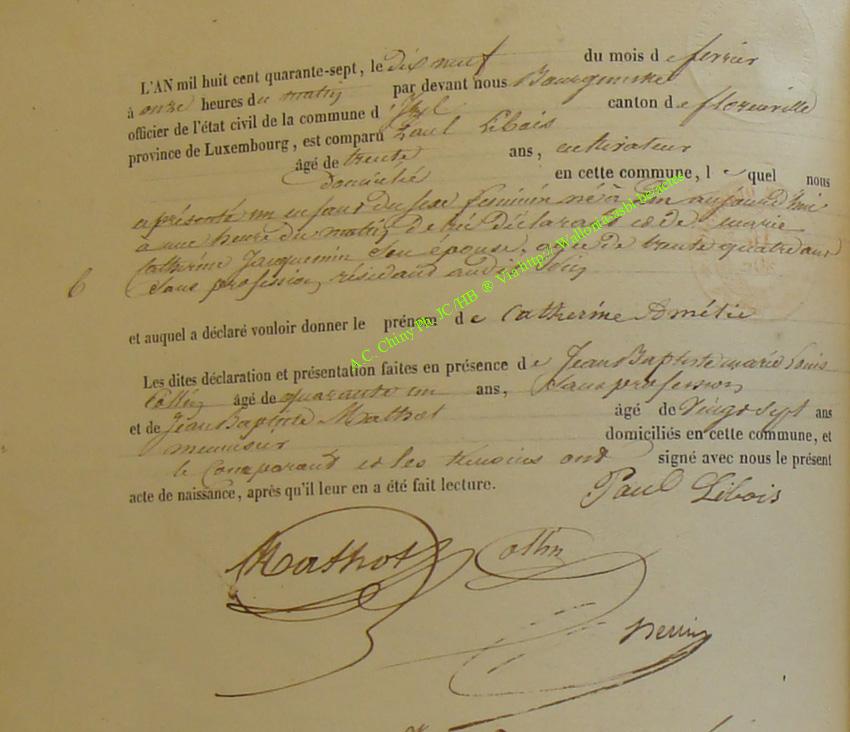 L'AN mil huit cent quarante-sept, le dix neuf du mois de fevrier
à onze heures du matin par devant nous Bourgmestre
officier de l'état civil de la commune d'Izel canton de florenville
province de Luxembourg, est comparu Paul Libois
âgé de trente ans, cultivateur
domicilié en cette commune, lequel nous
a présenté un enfant du sexe feminin né à aujourd'hui
à une heure du matin, de lui déclarant et de marie
Catherine Jacquemin son épouse, agée de trente quatre ans
sans profession, résidand audit
6
et auquel a déclaré vouloir donner le prénom de Catherine Amélie
Les dites déclaration et présentation faites en présence de Jean Baptiste marie Louis
Collin âgé de quarante un ans, sans profession
et de Jean Baptiste Mathot âgé de Vingt Sept ans
menuisier domiciliés en cette commune, et
le Comparand et les temoins ont signé avec nous le présent
acte de naissance, après qu'il leur en a été fait lecture.
Paul Libois
Mathot Collin
A.C. Chiny Ph. JC /HB ® Via http:/ Wallonia